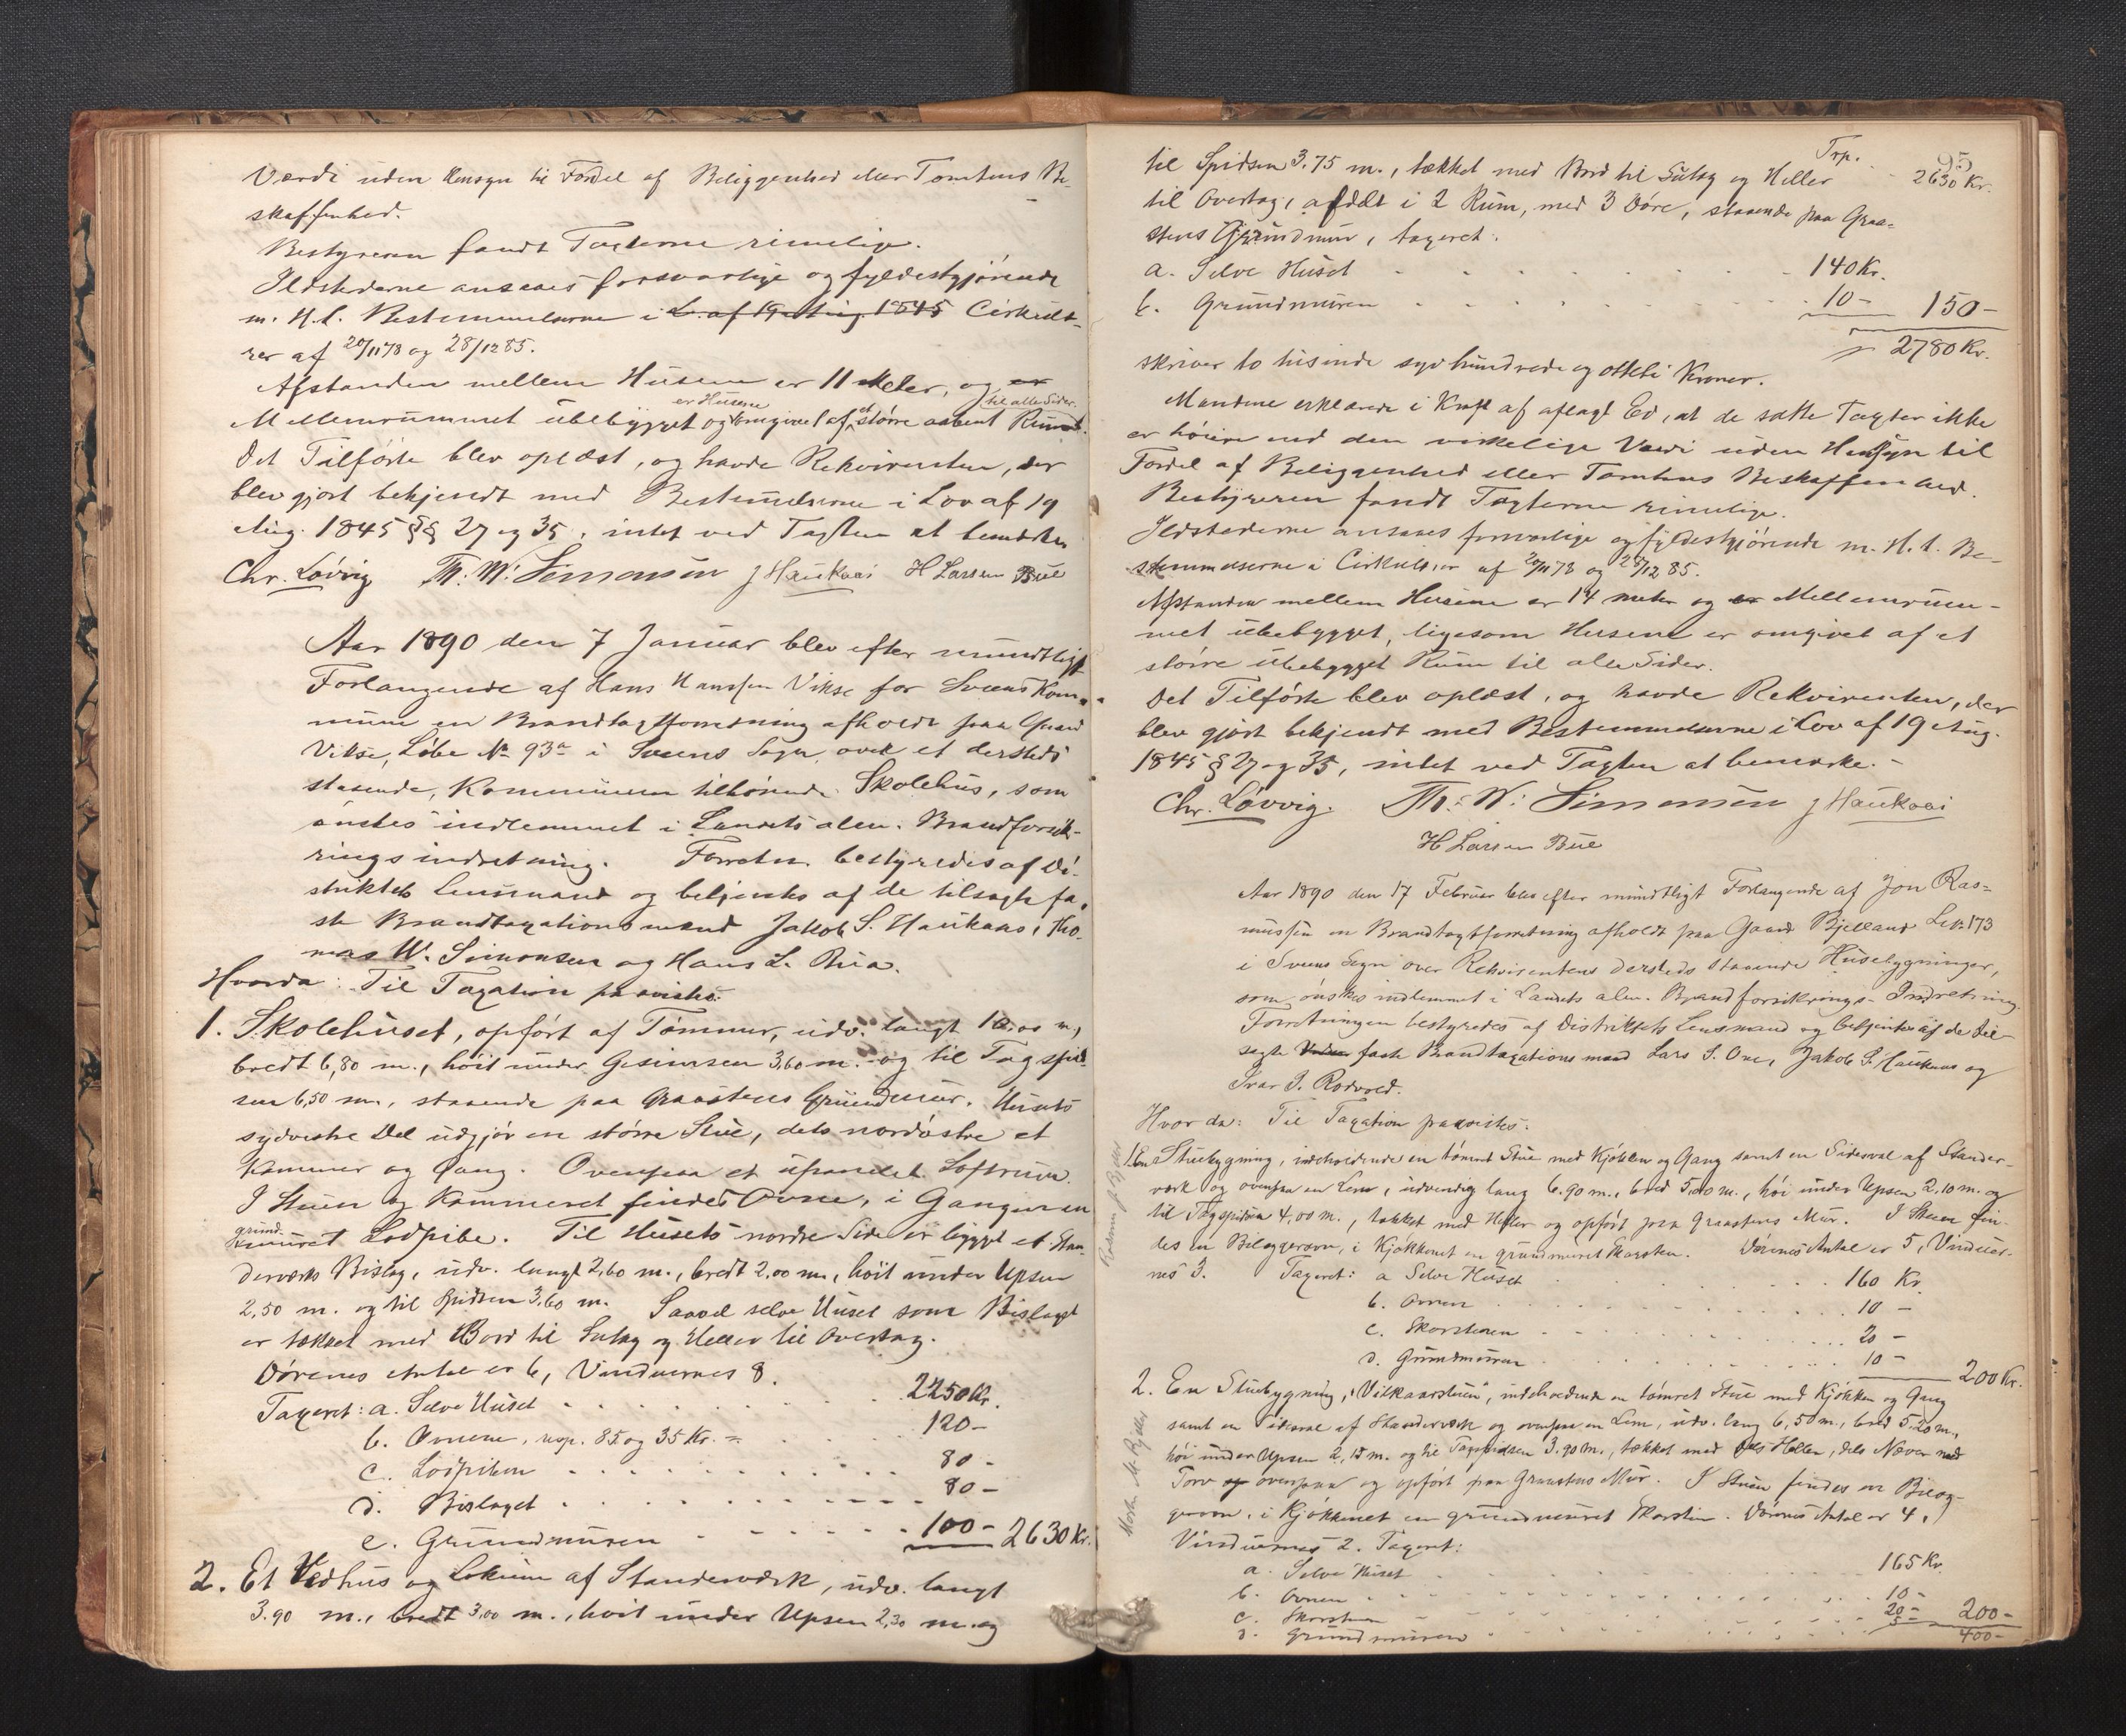 Værdi uden Hensyn til Fordel af Beliggenhed eller Tomtens Be-
skaffenhed.
Bestyreren fandt Taxterne rimelige.
Ildstederne ansaaes forsvarlige og fyldestgjørende
m. H. t. Bestemmelserne i L. af 19 Aug. 1845 Cirkulæ-
rer af 20/11 78 og 28/12 85.
Afstanden mellem Husene er 11 Meter, og er
Mellemrummet ubebygget og er Husene omgivet af et større aabent Rum til alle Sider.
Det Tilførte blev oplæst, og havde Rekvirenten, der
blev gjort bekjendt med Bestemmelserne i Lov af 19
Aug. 1845 §§ 27 og 35, intet ved Taxten at bemærke
Chr. Løvvig Th. W. Simonsen J Haukaas H Larsen Bue
Aar 1890 den 7 Januar blev efter mundtligt
Forlangende af Hans Hanssen Vikse for Sveens Kom-
mune en Brandtaxtforretning afholdt paa Gaard
Vikse, Løbe No 93a i Sveens Sogn over et dersteds
staaende, Kommunen tilhørende Skolehus, som
ønskes indlemmet i Landets alm. Brandforsik-
ringsindretning. Forretn. bestyredes af Di-
striktets Lensmand og betjentes af de tilsagte fa-
ste Brandtaxationsmænd Jakob S. Haukaas, Tho-
mas W. Simonsen og Hans L. Bua.
Hvorda: Til Taxation paavistes:
1. Skolehuset, opført af Tømmer, udv. langt 10.00 m,
bredt 6,80 m., høit under Gesimsen 3,60 m. og til Tagspid-
sen 6,50 m., staaende paa Graastens Grundmur. Husets
sydvestre Del udgjør en større Stue, dets nordøstre et
Kammer og Gang. Ovenpaa et upanelet Loftrum.
I Stuen og Kammeret findes Ovne, i Gangen en
grund-
muret Lodpibe. Til Husets nordre Side er bygget et Stan-
derværks Bislag, udv. langt 2,60 m., bredt 2,00 m., høit under Upsen
2,50 m. og til Spidsen 3,60 m. Saavel selve Huset som Bislaget
er tækket med Bord til Sutag og Heller til Overtag.
Dørenes Antal er 6, Vinduernes 8.
Taxeret: a. Selve Huset 2250 Kr.
b. Ovnene, resp. 85 og 35 Kr. = 120 -
c. Lodpiben 80 -
d. Bislaget 80 -
e. Grundmuren 100 - 2630 Kr.
2. Et Vedhus og Lokum af Standerværk, udv. langt
3.90 m., bredt 3,00 m., høit under Upsen 2,30 m. og
95
Trp. 2630 Kr.
til Spidsen 3.75 m., tækket med Bord til Sutag og Heller
til Overtag, afdelt i 2 Rum, med 3 Døre, staaende paa Graa-
stens Grundmur, taxeret:
a. Selve Huset 140 Kr.
b. Grundmuren 10 - 150 -
2780 Kr.
skriver to tusinde syv hundrede og otteti Kroner.
Mændene erklærede i Kraft af aflagt Ed, at de satte Taxter ikke
er høiere end den virkelige Værdi uden Hensyn til
Fordel af Beliggenhed eller Tomtens Beskaffenhed.
Bestyreren fandt Taxterne rimelige.
Ildstederne ansaaes forsvarlige og fyldestgjørende m. H. t. Be-
stemmelserne i Cirkulærer af 20/11 78 og 28/12 85.
Afstanden mellem Husene er 14 meter og er Mellemrum-
met ubebygget, ligesom Husene er omgivet af et
større ubebygget Rum til alle Sider.
Det Tilførte blev oplæst, og havde Rekvirenten, der
blev gjort bekjendt med Bestemmelserne i Lov af 19 Aug.
1845 § 27 og 35, intet ved Taxten at bemærke. -
Chr. Løvvig. Th. W. Simonsen J Haukaas
H Larsen Bue
Aar 1890 den 17 Februar blev efter mundtligt Forlangende af Jon Ras-
mussen en Brandtaxtforretning afholdt paa Gaard Bjelland L. No 173
i Sveens Sogn over Rekvirentens dersteds staaende Husebygninger,
som ønskes indlemmet i Landets alm. Brandforsikrings-Indretning.
Forretningen bestyredes af Distriktets Lensmand og betjentes af de til-
sagte faste Brandtaxationsmænd Lars S. Ove, Jakob S. Haukaas og
Ivar J. Rodvold.
Hvorda: Til Taxation paavistes:
1. En Stuebygning, indeholdende en tømret Stue med Kjøkken og Gang samt en Sidesval af Stander-
værk og ovenpaa en Lem, udvendig lang 6.90 m., bred 5,20 m., høi under Upsen 2,10 m. og
til Tagspidsen 4,00 m., tækket med Heller og opført paa Graastens Mur. I Stuen fin-
des en Bilæggerovn, i Kjøkkenet en grundmuret Skorsten. Dørenes Antal er 5, Vinduer-
nes 3. Taxeret: a Selve Huset 160 Kr.
b. Ovnen 10 -
c. Skorstenen 20 -
d. Grundmuren 10 - 200 Kr.
2. En Stuebygning, "Vilkaarstuen", indeholdende en tømret Stue med Kjøkken og Gang
samt en Sidesval af Standerværk og ovenpaa en Lem, udv. lang 6,50 m., bred 5,20 m.,
høi under Upsen 2,15 m. og til Tagspidsen 3.90 m., tækket med dels Heller, dels Næver med
Torv ovenpaa og opført paa Graastens Mur. I Stuen findes en Bilæg-
gerovn, i Kjøkkenet en grundmuret Skorsten. Dørenes Antal er 4,
Vinduernes 2. Taxeret:
a. Selve Huset 165 Kr.
b. Ovnen 10 -
c. Skorstenen 20 -
d. Grundmuren 5 - 200 -
400 -